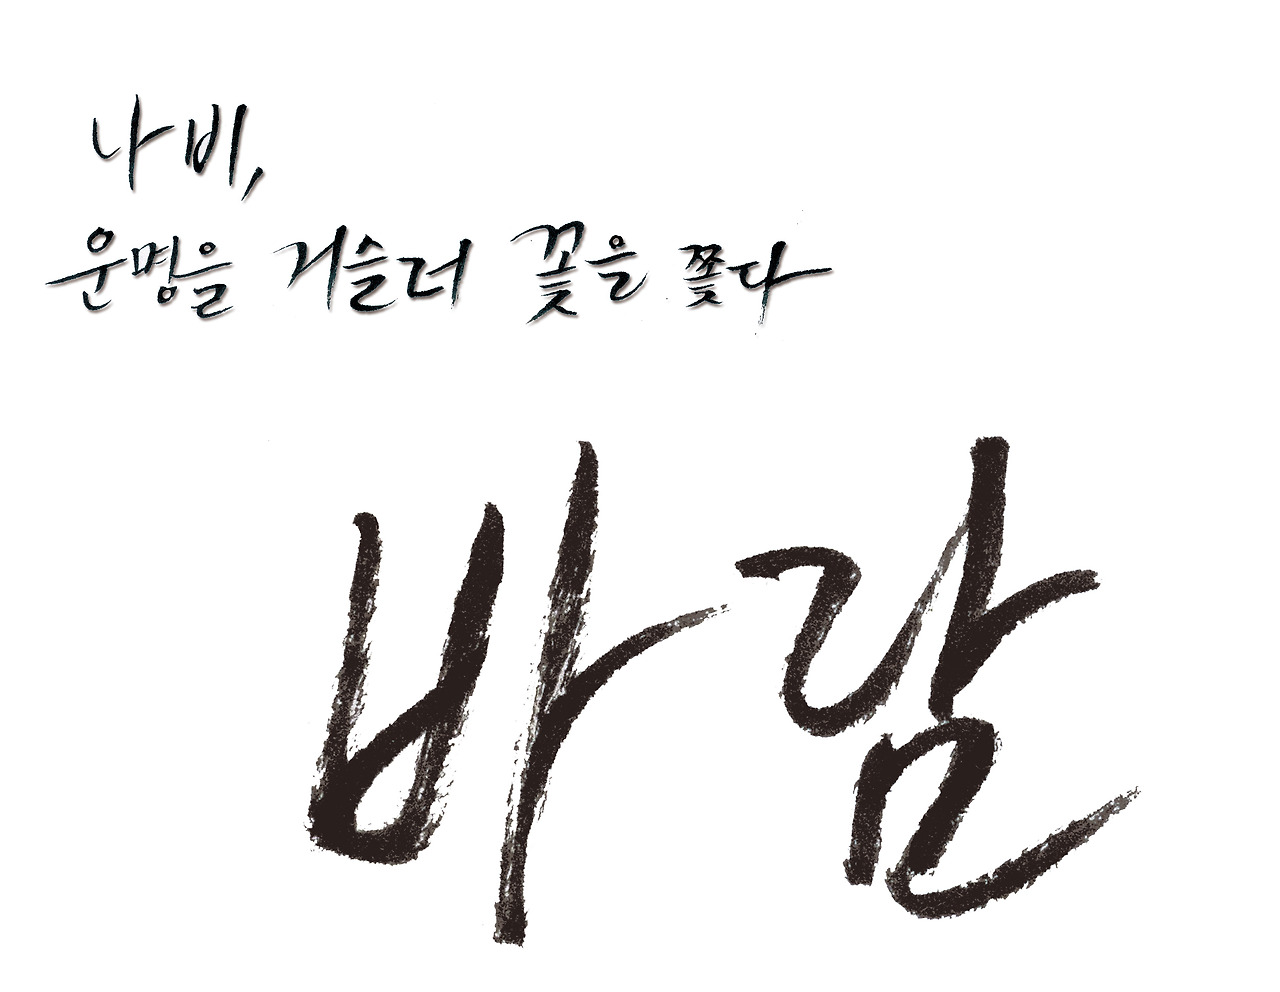 나비,
운명을 거슬러 꽃을 쫓다
바람